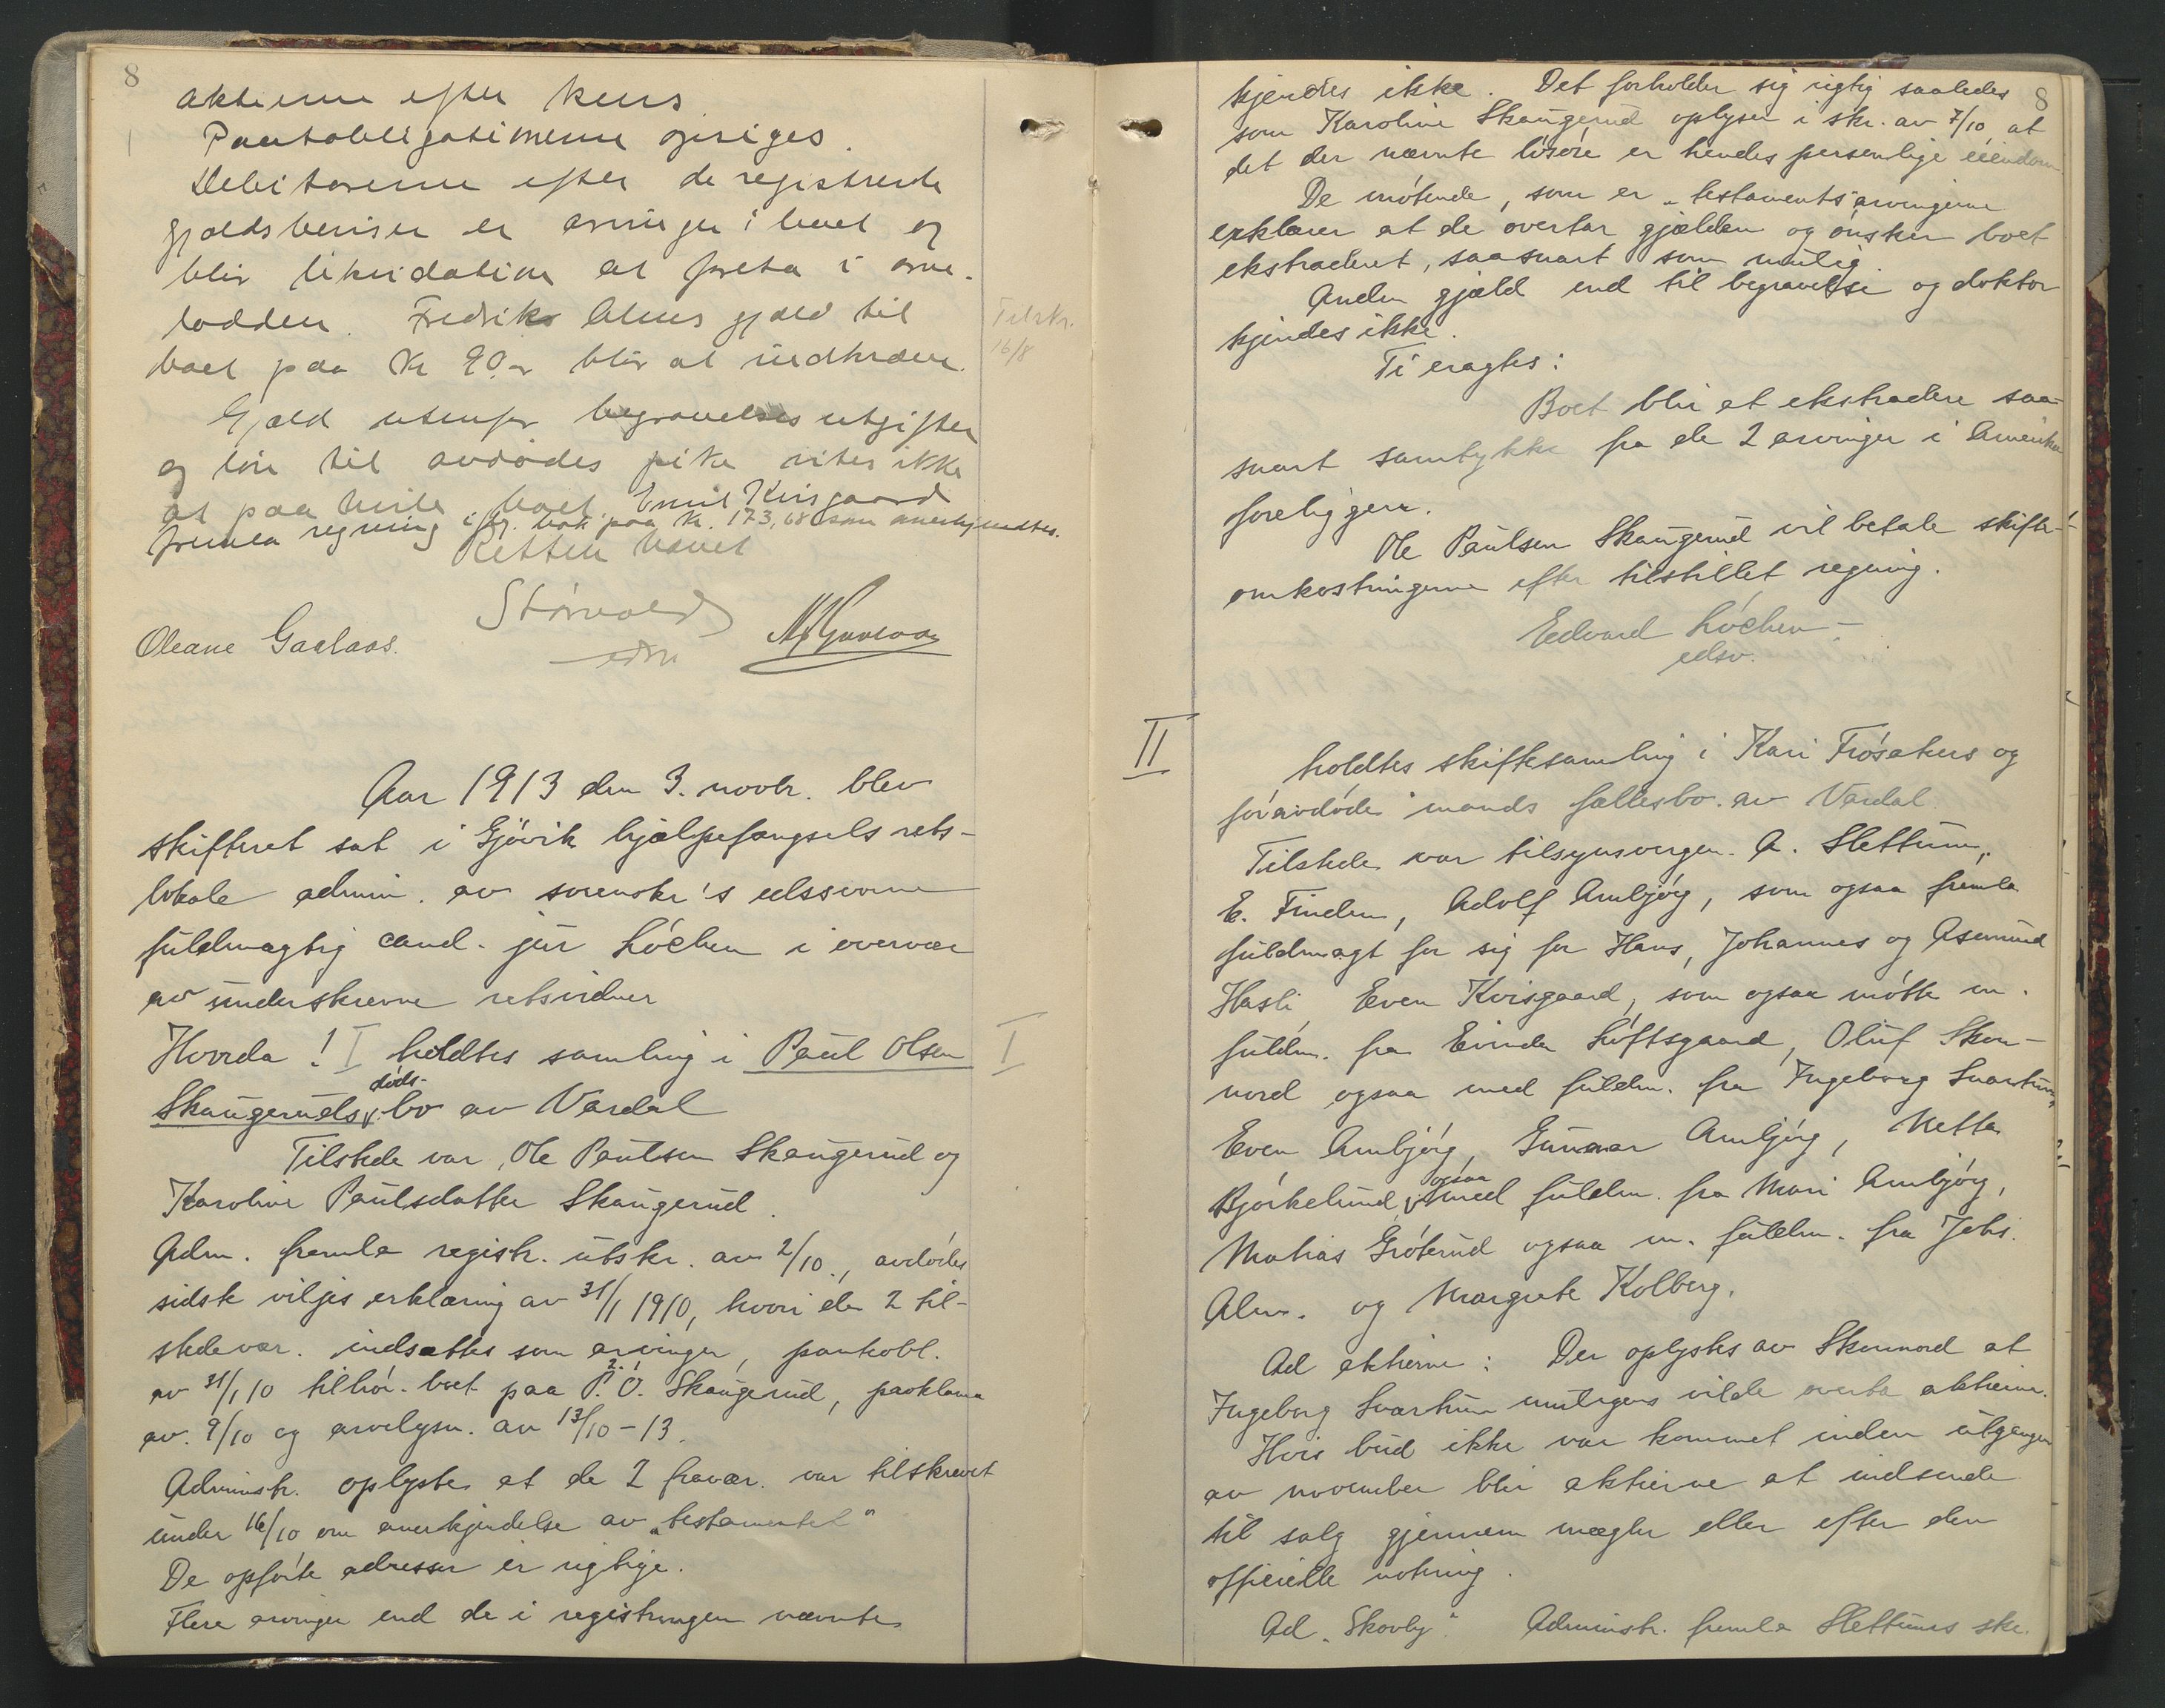 8
aktierne efter kurs
Pantobligationerne opsiges.
Debitorerne efter de registrerte
gjældsbeviser er arvinger i boet og
blir likvidation at foreta i arve-
lodden. Fredrik Alms gjæld til
boet paa Kr 90.- blir at indkræve.
Tilskr.
16/8
Gjæld utenfor begravelsesutgifter
og løn til avdødes pike vites ikke
at paa hvile boet. Emil Kvisgaard
fremla regning i flg. bok paa kr. 173,68 som anerkjendtes.
Retten hævet
Størvold
edsv
Oleane Gaalaas.
Aar 1913 den 3. novbr. blev
skifteret sat i Gjövik hjælpefængsels rets-
lokale admin. av sorenskr's edssvorne
fuldmægtig cand. jur Lóchen i overvær
av underskrevne retsvidner
Hvorda! I holdtes samling i Paul Olsen
I
Skaugeruds døds-bo av Vardal
Tilstede var, Ole Paulsen Skaugerud og
Karoline Paulsdatter Skaugerud.
Adm. fremla registr. utskr. av 2/10., avdódes
sidste viljes erklæring av 31/1 1910, hvori de 2 til-
stedevær. indsættes som arvinger, pantobl.
av 31/1 10 tilhór. boet paa P. O. Skaugerud, proklama
av 9/10 og arvelysn. av 13/10-13.
Administr. oplyste at de 2 fravær. var tilskrevet
under 16/10 om anerkjendelse av "testamentet"
De opfórte adresser er rigtige.
Flere arvinger end de i registringen nævnte
8
kjendes ikke. Det forholder sig rigtig saaledes
som Karoline Skaugerud oplyser i skr. av 7/10, at
det der nævnte lósóre er hendes personlige eiendom.
De mótende, som er "testaments"arvingerne
erklærer at de overtar gjælden og ónsker boet
ekstraderet, saasnart som mulig.
Anden gjæld end til begravelse og doktor
kjendes ikke.
Ti eragtes:
Boet blir at ekstradere saa-
snart samtykke fra de 2 arvinger i Amerika
foreligger.
Ole Paulsen Skaugerud vil betale skifte-
omkostningerne efter tilstillet regning.
Edvard Lóchen
edsv.
II
holdtes skiftesamling i Kari Frósakers og
fóravdóde mands fællesbo av Vardal.
Tilstede var tilsynsvergen A. Slettum,
E. Finden, Adolf Ambjórg, som ogsaa fremla
fuldmagt for sig for Hans, Johannes og Asmund
Hasli, Even Kvisgaard, som ogsaa mótte m.
fuldm. fra Lóftsgaard, Oluf Sken-
nord ogsaa med fuldm. fra Ingeborg Svartum,
Even Ambjórg, Gunnar Ambjórg, Netta
Bjórkelund, ogsaa med fuldm. fra Mari Ambjórg,
Matias Gróterud ogsaa m. fuldm. fra Johs.
Alm. og Margrete Kolberg.
Ad aktierne: Der oplystes av Skennord at
Ingeborg Svartum muligens vilde overta aktierne.
Hvis bud ikke var kommet inden utgangen
av november blir aktierne at indsende
til salg gjennem mægler eller efter den
officielle notering.
Ad "Skovly". Administr. fremla Slettums skr.